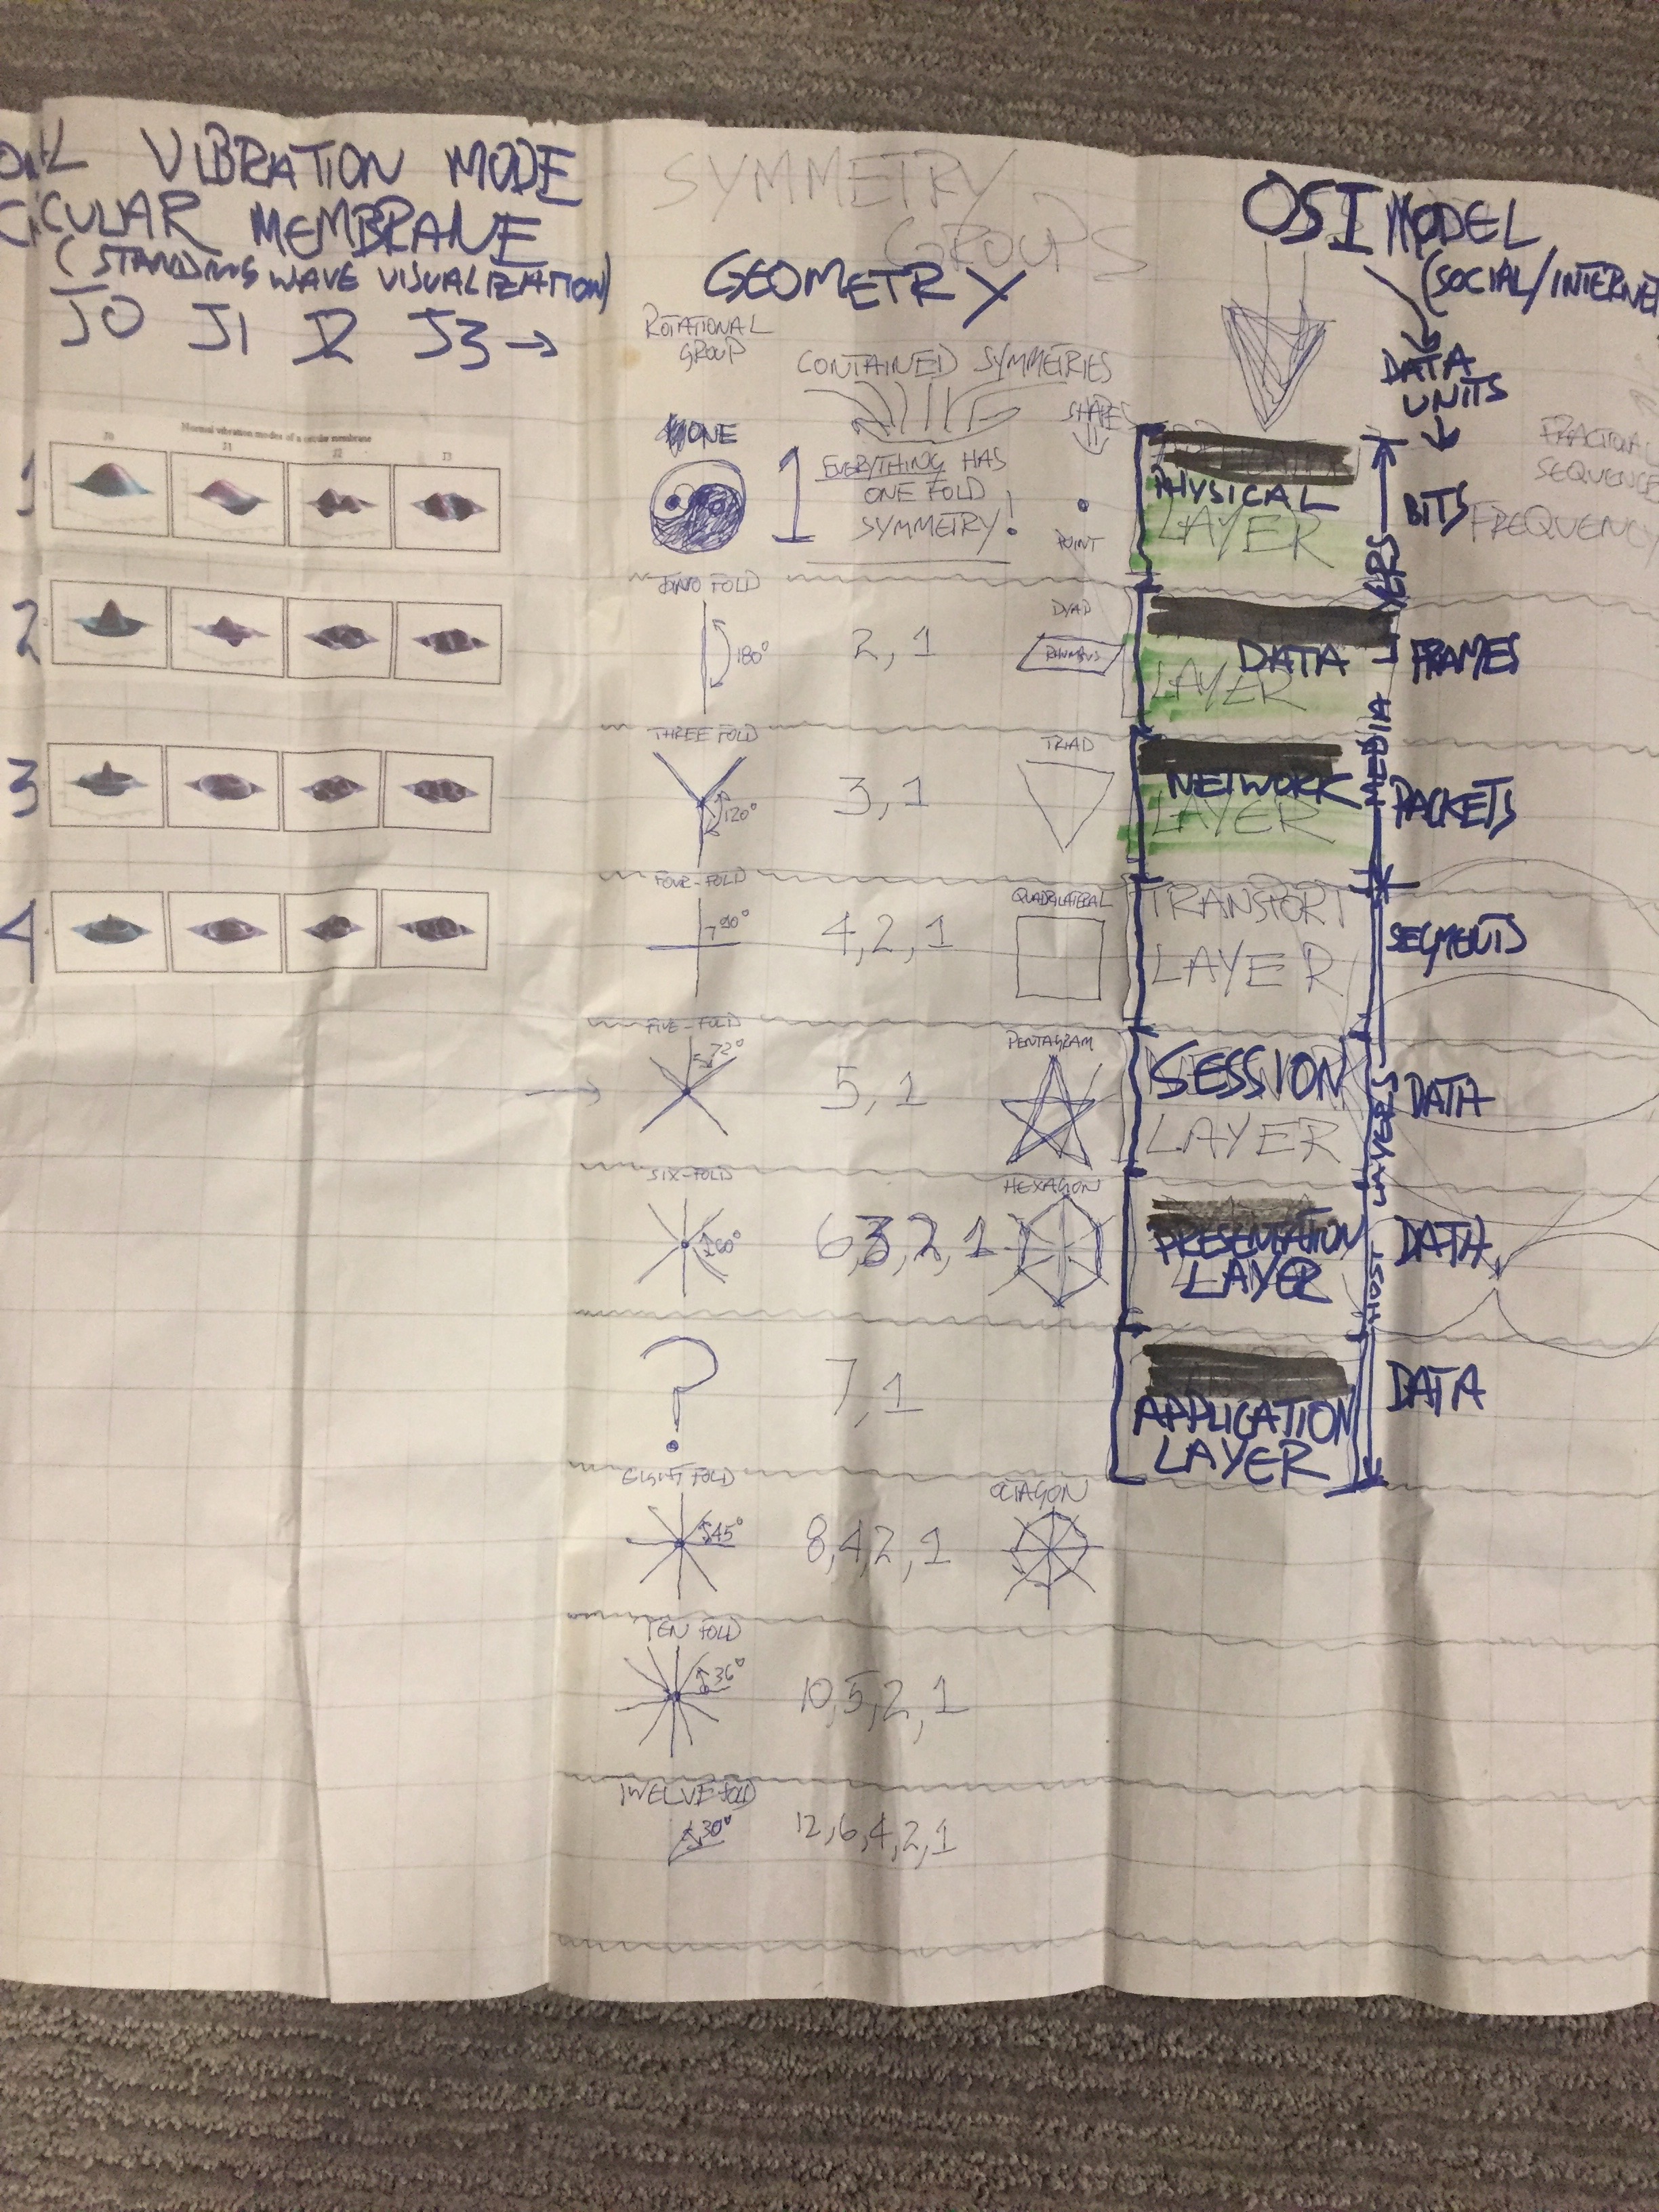 ONAL VIBRATION MODE
CIRCULAR MEMBRANE
(STANDING WAVE VISUALIZATION)
J0 J1 J2 J3 →
Normal vibration modes of a circular membrane
J0 J1 J2 J3
1
2
3
4
SYMMETRY
GROUPS
GEOMETRY
ROTATIONAL
GROUP
CONTAINED SYMMETRIES
SHAPES
ONE
1
EVERYTHING HAS
ONE FOLD
SYMMETRY!
POINT
TWO FOLD
180°
2, 1
DYAD
RHOMBUS
THREE FOLD
120°
3, 1
TRIAD
FOUR-FOLD
90°
4, 2, 1
QUADRILATERAL
FIVE-FOLD
72°
5, 1
PENTAGRAM
SIX-FOLD
60°
6, 3, 2, 1
HEXAGON
?
7, 1
EIGHT FOLD
45°
8, 4, 2, 1
OCTAGON
TEN FOLD
36°
10, 5, 2, 1
TWELVE FOLD
30°
12, 6, 4, 2, 1
OSI MODEL
(SOCIAL/INTERNET
DATA
UNITS
PHYSICAL
LAYER
BITS
DATA
LAYER
FRAMES
NETWORK
LAYER
PACKETS
MEDIA LAYERS
TRANSPORT
LAYER
SEGMENTS
SESSION
LAYER
DATA
PRESENTATION
LAYER
DATA
APPLICATION
LAYER
DATA
HOST LAYERS
FRACTIONAL
SEQUENCE
FREQUENCY